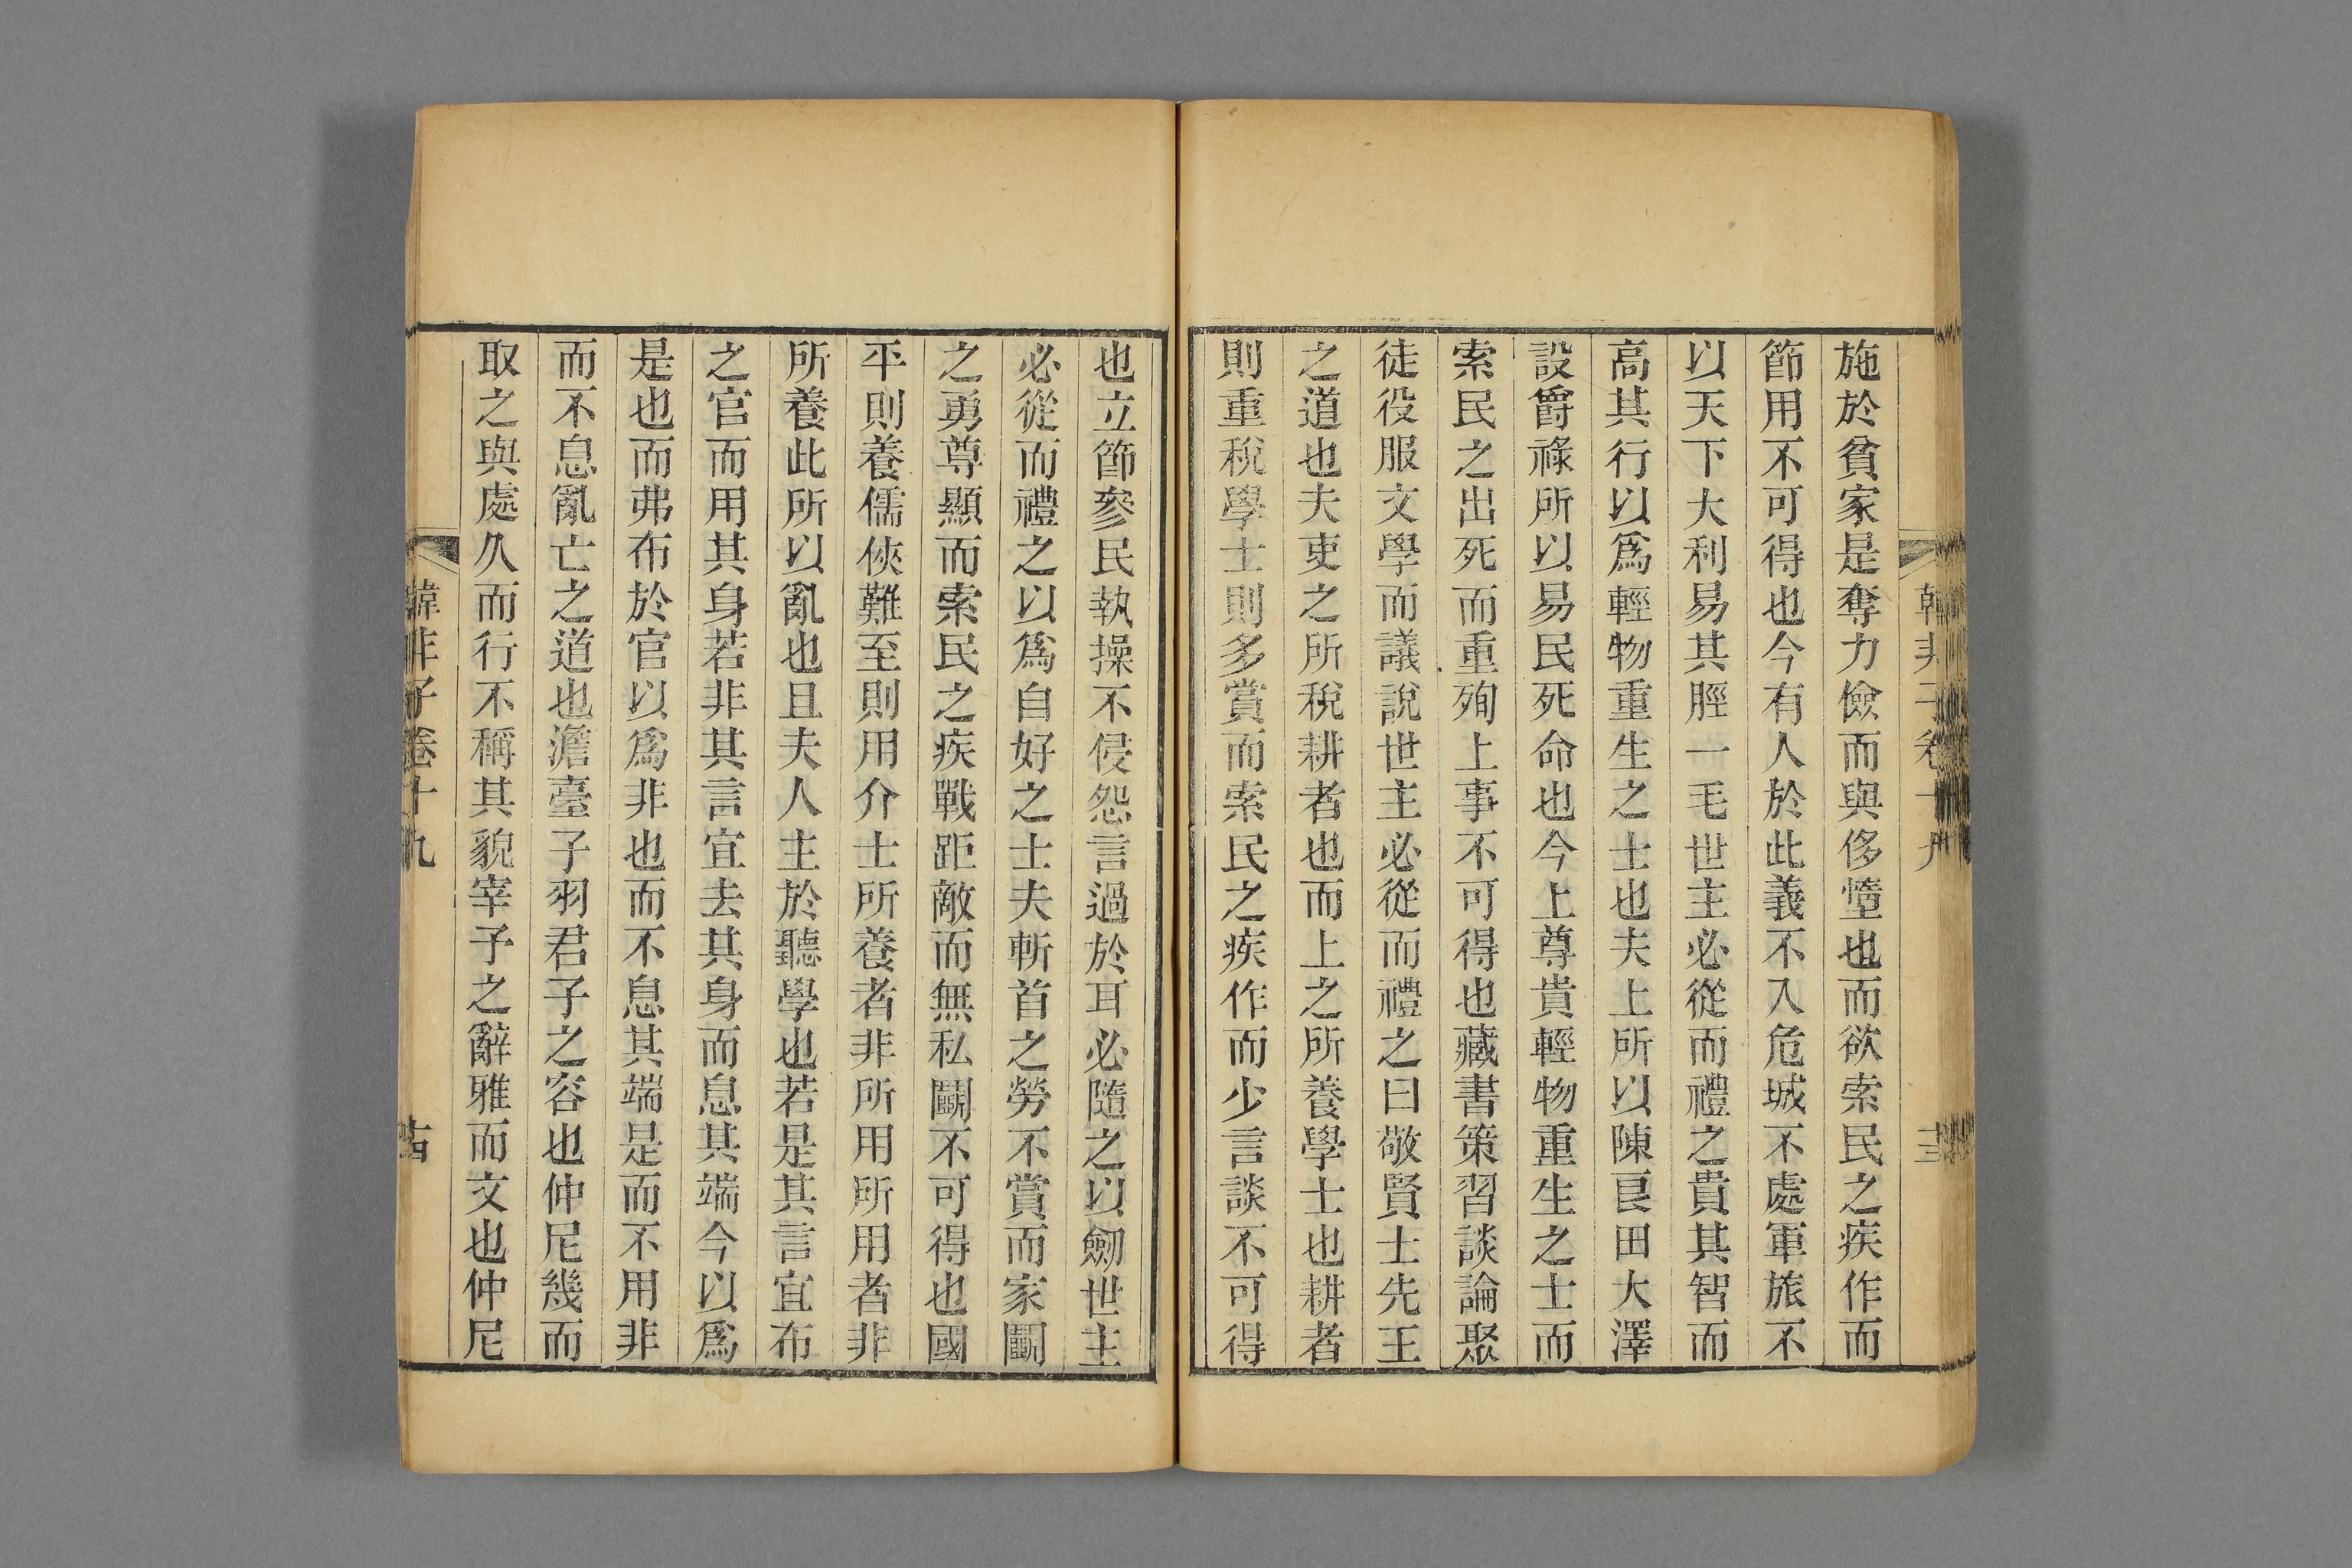 施於貧家是奪力儉而與侈墯也而欲索民之疾作而
節用不可得也今有人於此義不入危城不處軍旅不
以天下大利易其脛一毛世主必從而禮之貴其智而
高其行以爲輕物重生之士也夫上所以陳良田大澤
設爵祿所以易民死命也今上尊貴輕物重生之士而
索民之出死而重殉上事不可得也藏書策習談論聚
徒役服文學而議說世主必從而禮之曰敬賢士先王
之道也夫吏之所稅耕者也而上之所養學士也耕者
則重稅學士則多賞而索民之疾作而少言談不可得
也立節參民執操不侵怨言過於耳必隨之以劒世主
必從而禮之以爲自好之士夫斬首之勞不賞而家鬭
之勇尊顯而索民之疾戰距敵而無私鬭不可得也國
平則養儒俠難至則用介士所養者非所用所用者非
所養此所以亂也且夫人主於聽學也若是其言宜布
之官而用其身若非其言宜去其身而息其端今以爲
是也而弗布於官以爲非也而不息其端是而不用非
而不息亂亡之道也澹臺子羽君子之容也仲尼幾而
取之與處久而行不稱其貌宰予之辭雅而文也仲尼
韓非子卷十九